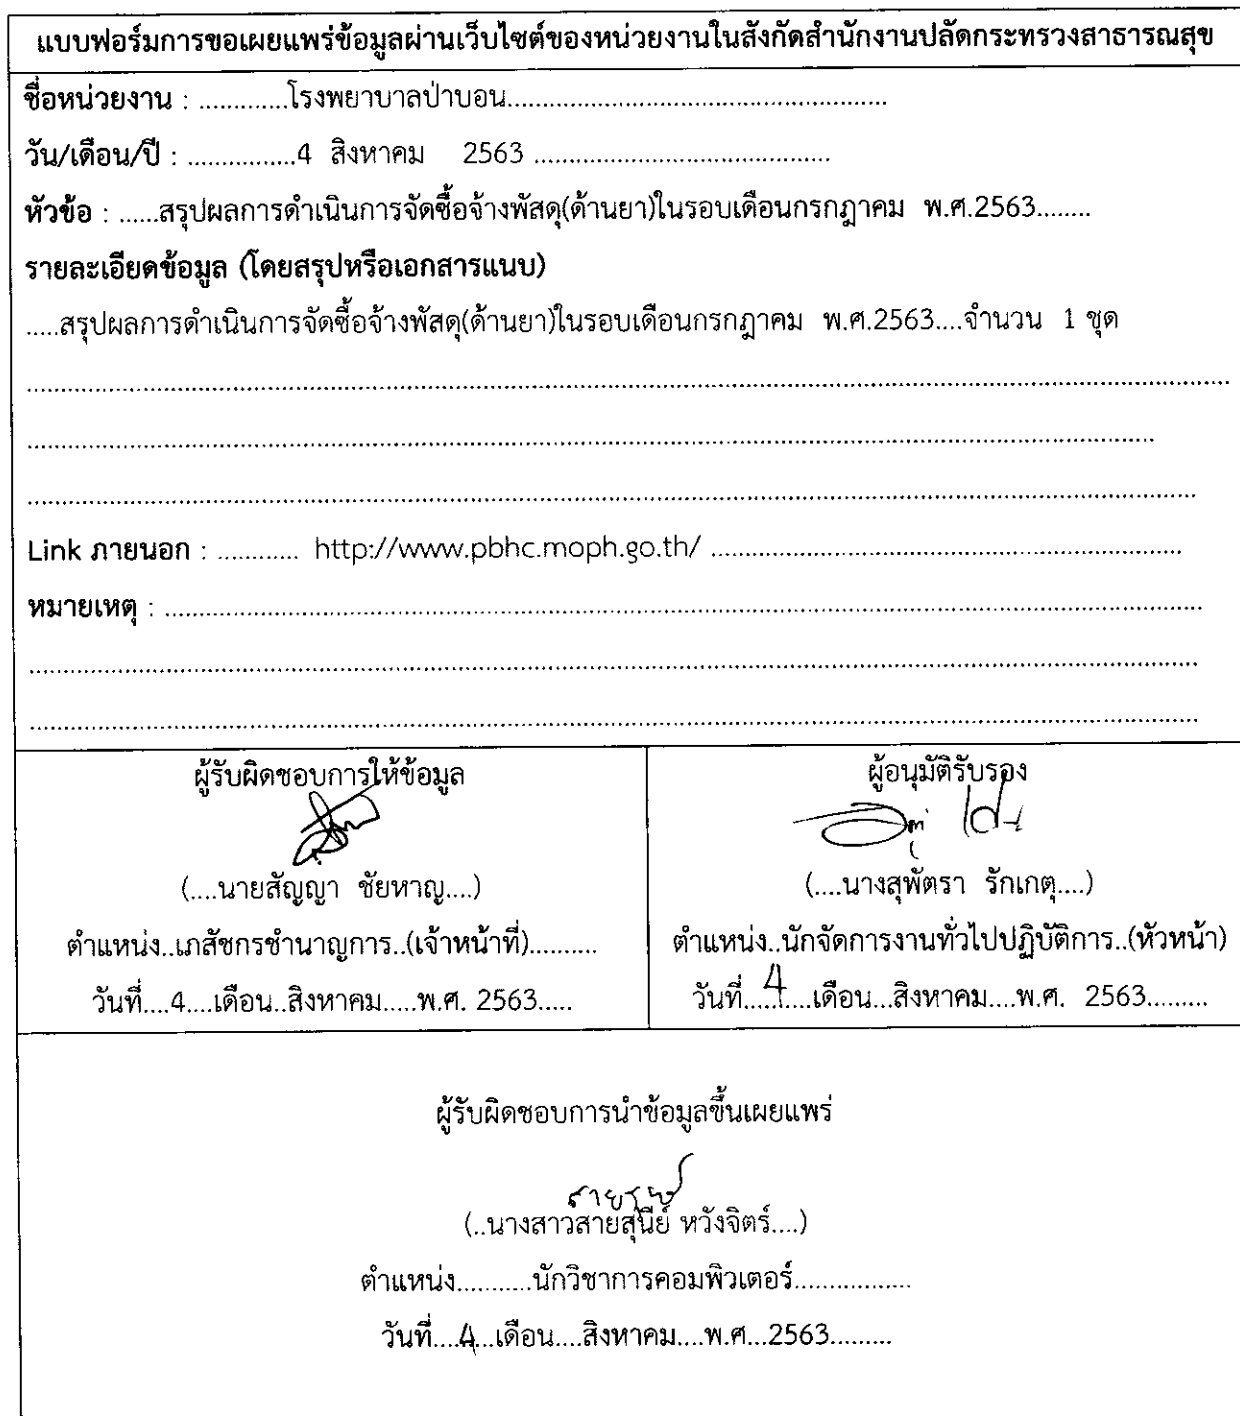 แบบฟอร์มการขอเผยแพร่ข้อมูลผ่านเว็บไซต์ของหน่วยงานในสังกัดสำนักงานปลัดกระทรวงสาธารณสุข
ชื่อหน่วยงาน : .............โรงพยาบาลป่าบอน........................................................
วัน/เดือน/ปี : ................4 สิงหาคม 2563 ............................................
หัวข้อ : ......สรุปผลการดำเนินการจัดซื้อจ้างพัสดุ(ด้านยา)ในรอบเดือนกรกฎาคม พ.ศ.2563........
รายละเอียดข้อมูล (โดยสรุปหรือเอกสารแนบ)
.....สรุปผลการดำเนินการจัดซื้อจ้างพัสดุ(ด้านยา)ในรอบเดือนกรกฎาคม พ.ศ.2563....จำนวน 1 ชุด
Link ภายนอก : ............ http://www.pbhc.moph.go.th/ ......................................................................
หมายเหตุ : ..........................................................................................................................
ผู้รับผิดชอบการให้ข้อมูล
(....นายสัญญา ชัยหาญ....)
ตำแหน่ง..เภสัชกรชำนาญการ..(เจ้าหน้าที่)..........
วันที่....4....เดือน..สิงหาคม.....พ.ศ. 2563.....
ผู้อนุมัติรับรอง
(....นางสุพัตรา รักเกตุ....)
ตำแหน่ง..นักจัดการงานทั่วไปปฏิบัติการ..(หัวหน้า)
วันที่.....4....เดือน...สิงหาคม....พ.ศ. 2563.........
ผู้รับผิดชอบการนำข้อมูลขึ้นเผยแพร่
(..นางสาวสายสุนีย์ หวังจิตร์....)
ตำแหน่ง...........นักวิชาการคอมพิวเตอร์.................
วันที่....4...เดือน....สิงหาคม....พ.ศ...2563.........